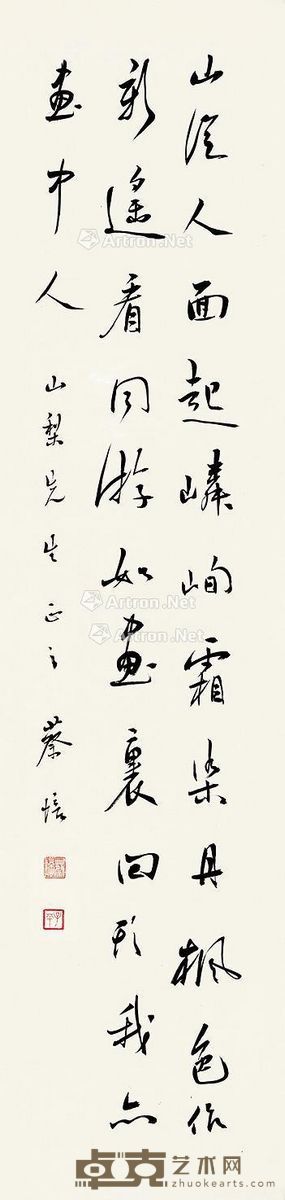 山從人面起嶙峋霜染丹楓色作
新遙看同游如畫裏回頭我亦
畫中人
山梨先生正之 蔡培
子平
Artron.Net
Artron.Net
Artron.Net
Artron.Net
Artron.Net
Artron.Net
卓克艺术网
zhuokearts.com